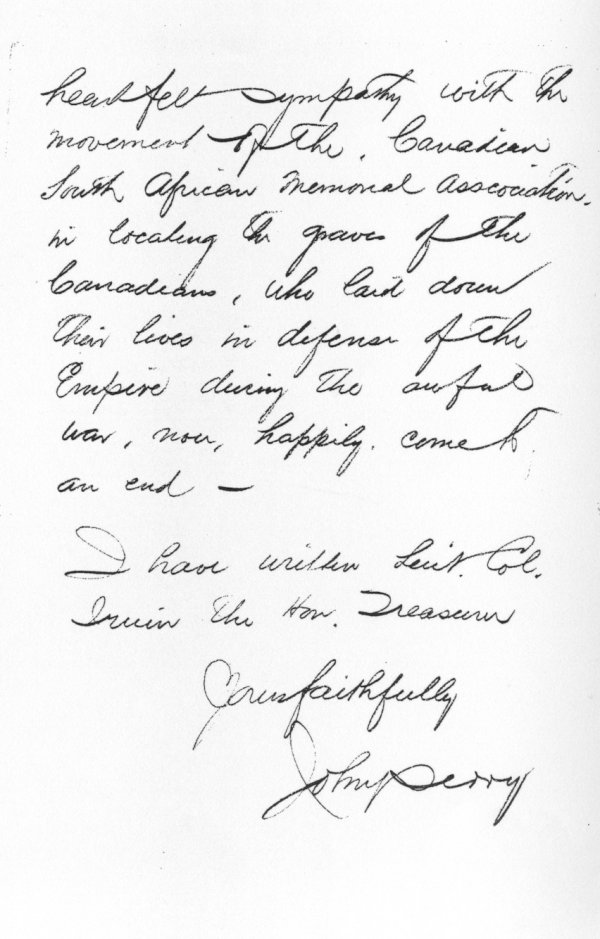 heartfelt sympathy with the
movement of the, Canadian
South African Memorial Association.
in locating the graves of the
Canadians, who laid down
their lives in defense of the
Empire during the awful
war, now, happily. come to
an end —
I have written Leut. Col.
Irwin the Hon. Treasurer
Yours faithfully
John